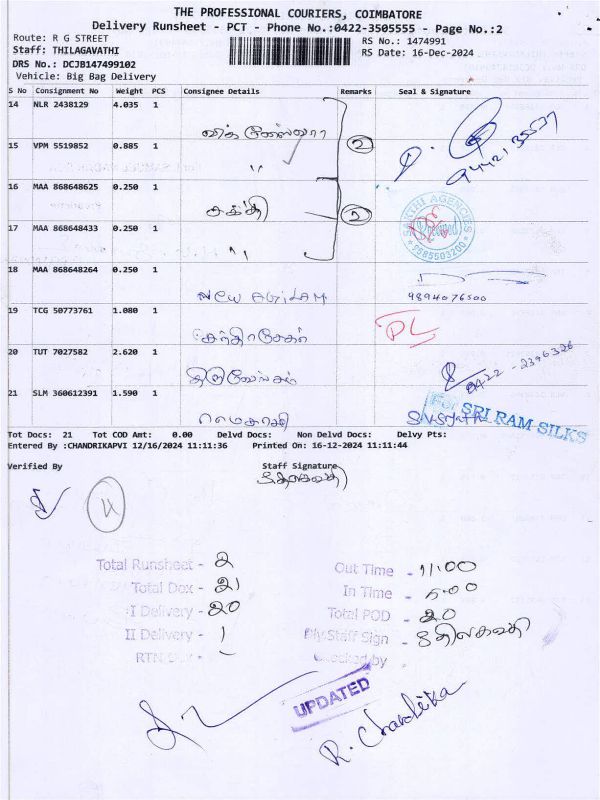 THE PROFESSIONAL COURIERS, COIMBATORE
Delivery Runsheet - PCT - Phone No.:0422-3505555 - Page No.:2
Route: R G STREET
RS No.: 1474991
Staff: THILAGAVATHI
RS Date: 16-Dec-2024
DRS No.: DCJB147499102
Vehicle: Big Bag Delivery
S No Consignment No Weight PCS Consignee Details Remarks Seal & Signature
14 NLR 2438129 4.035 1
94421 35577
15 VPM 5519852 0.885 1 " 2
16 MAA 868648625 0.250 1 சக்தி 2
SAKTHI AGENCIES
9585503200
17 MAA 868648433 0.250 1 "
18 MAA 868648264 0.250 1 New AGILAM
9894076500
19 TCG 50773761 1.080 1 DL
20 TUT 7027582 2.620 1 திருவேங்கடம்
0422-2396326
21 SLM 360612391 1.590 1 மைதாலி
For SRI RAM SILKS
Tot Docs: 21 Tot COD Amt: 0.00 Delvd Docs: Non Delvd Docs: Delvy Pts:
Entered By :CHANDRIKAPVI 12/16/2024 11:11:36 Printed On: 16-12-2024 11:11:44
Verified By Staff Signature
திலகவதி
Total Runsheet - 2
Out Time - 11:00
Total Dox - 21
In Time - 5:00
I Delivery - 20
Total POD - 20
II Delivery - 1
Dly Staff Sign - திலகவதி
Checked by
UPDATED
R. Chandrika